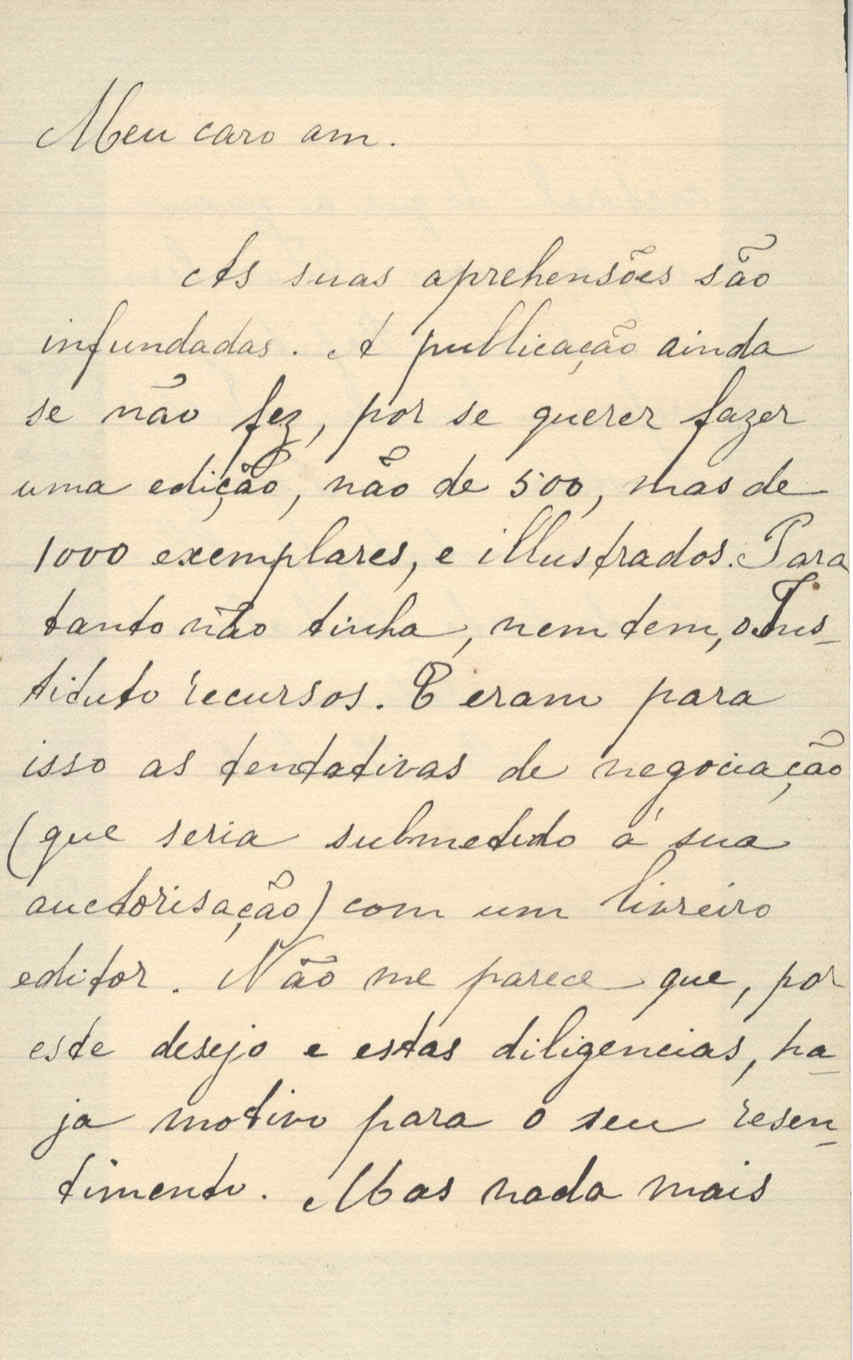 Meu caro am.
As suas aprehensões são
infundadas. A publicação ainda
se não fez, por se querer fazer
uma edição, não de 500, mas de
1000 exemplares, e illustrados. Para
tanto não tinha, nem tem, o Ins-
tituto recursos. E eram para
isso as tentativas de negociação
(que seria submetido á sua
auctorisação) com um livreiro
editor. Não me parece que, por
este desejo e estas diligencias, ha-
ja motivo para o seu resen-
timento. Mas nada mais